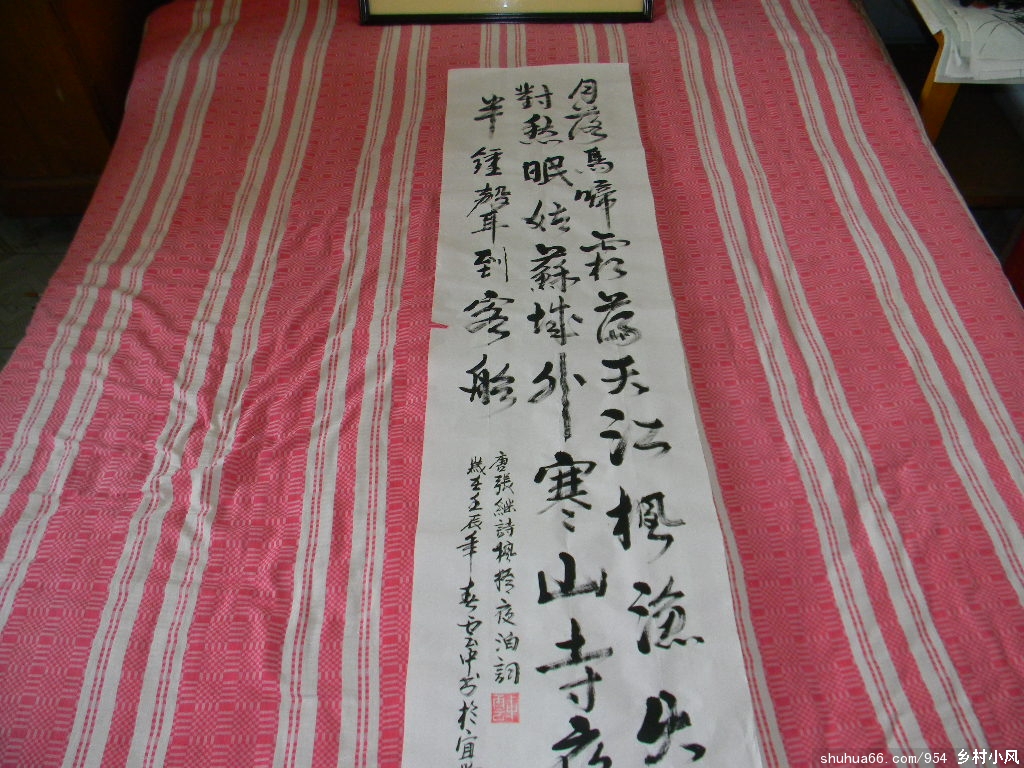 月落烏啼霜滿天江楓漁火
對愁眠姑蘇城外寒山寺夜
半鍾聲到客船
唐張継詩楓橋夜泊詞
歲在壬辰年春雲中书於宜
shuhua66.com/954 乡村小风